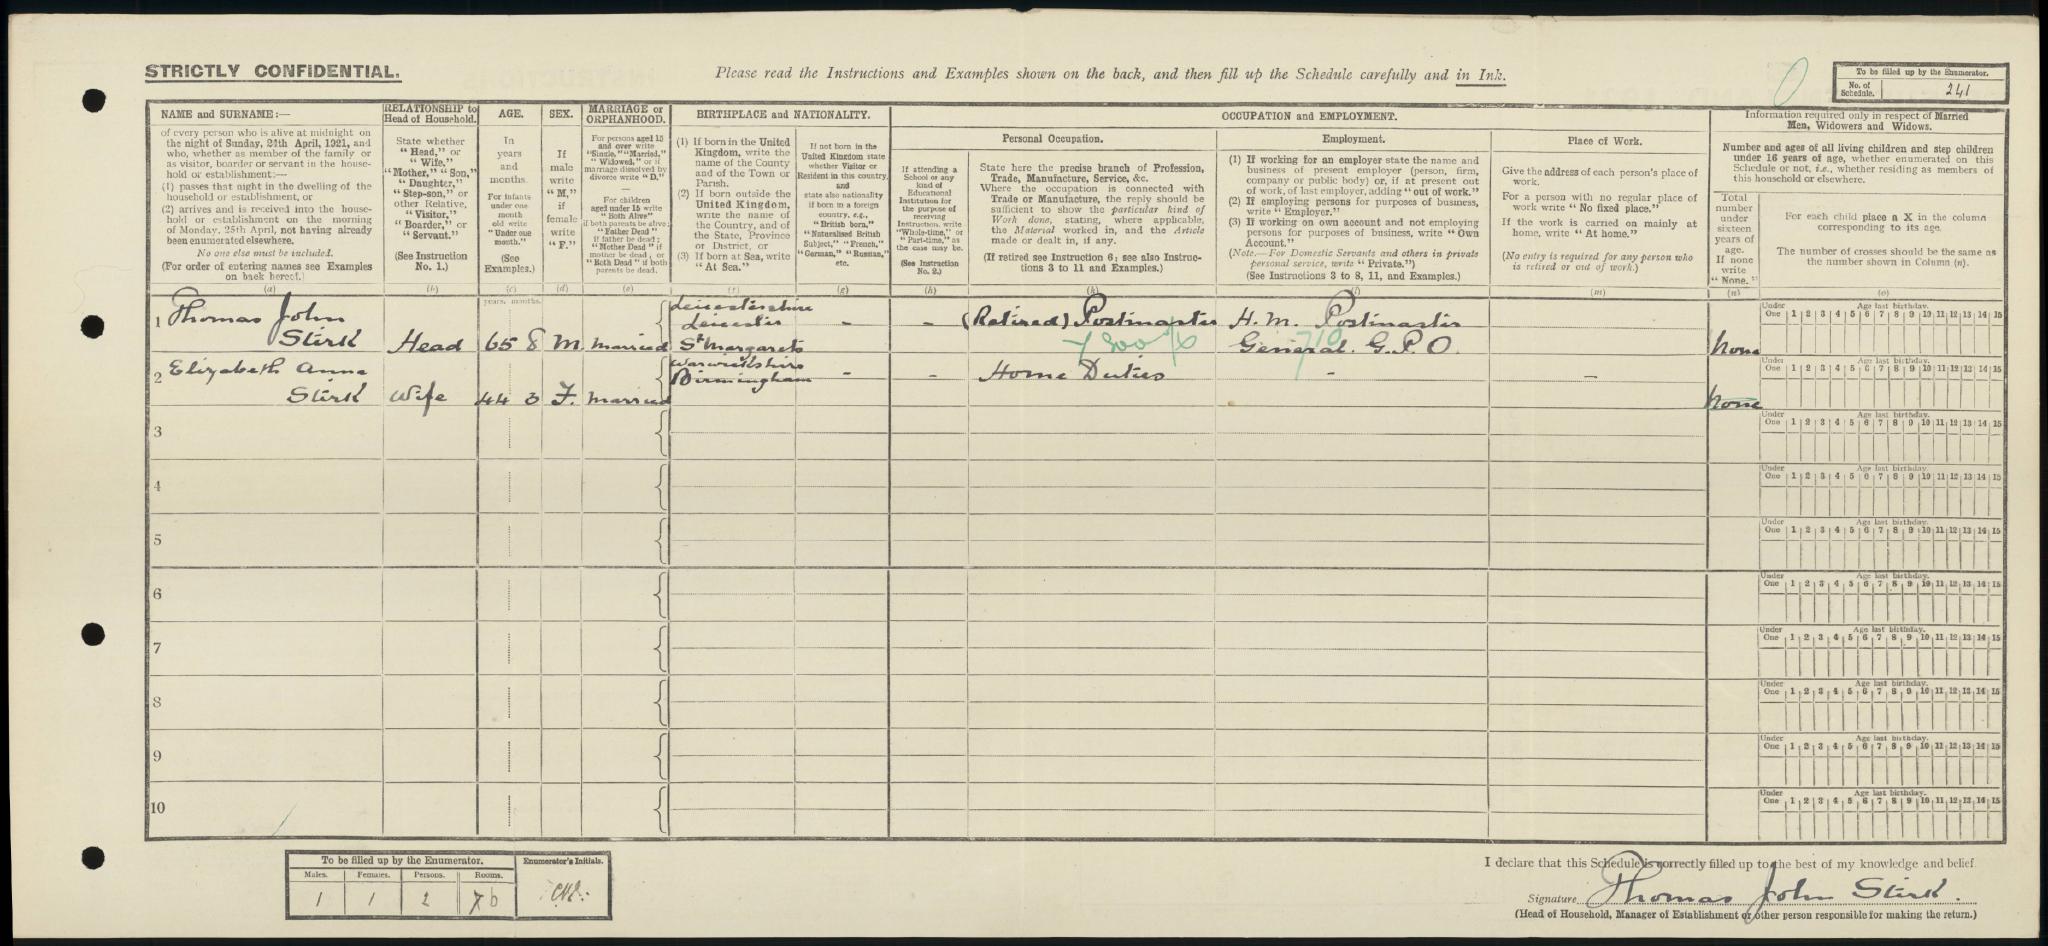 STRICTLY CONFIDENTIAL.
Please read the Instructions and Examples shown on the back, and then fill up the Schedule carefully and in Ink.
To be filled up by the Enumerator.
No. of Schedule.
241
NAME and SURNAME:—
of every person who is alive at midnight on
the night of Sunday, 24th April, 1921, and
who, whether as member of the family or
as visitor, boarder or servant in the house-
hold or establishment:—
(1) passes that night in the dwelling of the
household or establishment, or
(2) arrives and is received into the house-
hold or establishment on the morning
of Monday, 25th April, not having already
been enumerated elsewhere.
No one else must be included.
(For order of entering names see Examples
on back hereof.)
(a)
RELATIONSHIP to
Head of Household.
State whether
"Head," or
"Wife,"
"Mother," "Son,"
"Daughter,"
"Step-son," or
other Relative,
"Visitor,"
"Boarder," or
"Servant."
(See Instruction
No. 1.)
(b)
AGE.
In
years
and
months.
For infants
under one
month
old write
"Under one
month."
(See
Examples.)
(c)
SEX.
If
male
write
"M,"
if
female
write
"F."
(d)
MARRIAGE or
ORPHANHOOD.
For persons aged 15
and over write
"Single," "Married,"
"Widowed," or if
marriage dissolved by
divorce write "D."
—
For children
aged under 15 write
"Both Alive"
if both parents be alive;
"Father Dead"
if father be dead;
"Mother Dead" if
mother be dead, or
"Both Dead" if both
parents be dead.
(e)
BIRTHPLACE and NATIONALITY.
(1) If born in the United
Kingdom, write the
name of the County
and of the Town or
Parish.
(2) If born outside the
United Kingdom,
write the name of
the Country, and of
the State, Province
or District, or
(3) If born at Sea, write
"At Sea."
(f)
If not born in the
United Kingdom state
whether Visitor or
Resident in this country,
and
state also nationality
if born in a foreign
country, e.g.,
"British born,"
"Naturalised British
Subject," "French,"
"German," "Russian,"
etc.
(g)
OCCUPATION and EMPLOYMENT.
Personal Occupation.
If attending a
School or any
kind of
Educational
Institution for
the purpose of
receiving
instruction, write
"Whole-time," or
"Part-time," as
the case may be.
(See Instruction
No. 2.)
(h)
State here the precise branch of Profession,
Trade, Manufacture, Service, &c.
Where the occupation is connected with
Trade or Manufacture, the reply should be
sufficient to show the particular kind of
Work done, stating, where applicable,
the Material worked in, and the Article
made or dealt in, if any.
(If retired see Instruction 6; see also Instruc-
tions 3 to 11 and Examples.)
(k)
Employment.
(1) If working for an employer state the name and
business of present employer (person, firm,
company or public body) or, if at present out
of work, of last employer, adding "out of work."
(2) If employing persons for purposes of business,
write "Employer."
(3) If working on own account and not employing
persons for purposes of business, write "Own
Account."
(Note.—For Domestic Servants and others in private
personal service, write "Private.")
(See Instructions 3 to 8, 11, and Examples.)
(l)
Place of Work.
Give the address of each person's place of
work.
For a person with no regular place of
work write "No fixed place."
If the work is carried on mainly at
home, write "At home."
(No entry is required for any person who
is retired or out of work.)
(m)
Information required only in respect of Married
Men, Widowers and Widows.
Number and ages of all living children and step children
under 16 years of age, whether enumerated on this
Schedule or not, i.e., whether residing as members of
this household or elsewhere.
Total
number
under
sixteen
years of
age.
If none
write
"None."
(n)
For each child place a X in the column
corresponding to its age.
The number of crosses should be the same as
the number shown in Column (n).
(o)
years. months.
1 Thomas John Stirk Head 65 8 M. Married Leicestershire Leicester St Margarets - - (Retired) Postmaster H. M. Postmaster General. G.P.O. None
7800/6 710
Under One 1 2 3 4 5 6 7 8 9 10 11 12 13 14 15 Age last birthday.
2 Elizabeth Anne Stirk Wife 44 3 F. Married Warwickshire Birmingham - - Home Duties - - None
Under One 1 2 3 4 5 6 7 8 9 10 11 12 13 14 15 Age last birthday.
3
Under One 1 2 3 4 5 6 7 8 9 10 11 12 13 14 15 Age last birthday.
4
Under One 1 2 3 4 5 6 7 8 9 10 11 12 13 14 15 Age last birthday.
5
Under One 1 2 3 4 5 6 7 8 9 10 11 12 13 14 15 Age last birthday.
6
Under One 1 2 3 4 5 6 7 8 9 10 11 12 13 14 15 Age last birthday.
7
Under One 1 2 3 4 5 6 7 8 9 10 11 12 13 14 15 Age last birthday.
8
Under One 1 2 3 4 5 6 7 8 9 10 11 12 13 14 15 Age last birthday.
9
Under One 1 2 3 4 5 6 7 8 9 10 11 12 13 14 15 Age last birthday.
10
Under One 1 2 3 4 5 6 7 8 9 10 11 12 13 14 15 Age last birthday.
To be filled up by the Enumerator.
Enumerator's Initials.
Males. Females. Persons. Rooms.
1 1 2 7 6
I declare that this Schedule is correctly filled up to the best of my knowledge and belief.
Signature Thomas John Stirk.
(Head of Household, Manager of Establishment or other person responsible for making the return.)